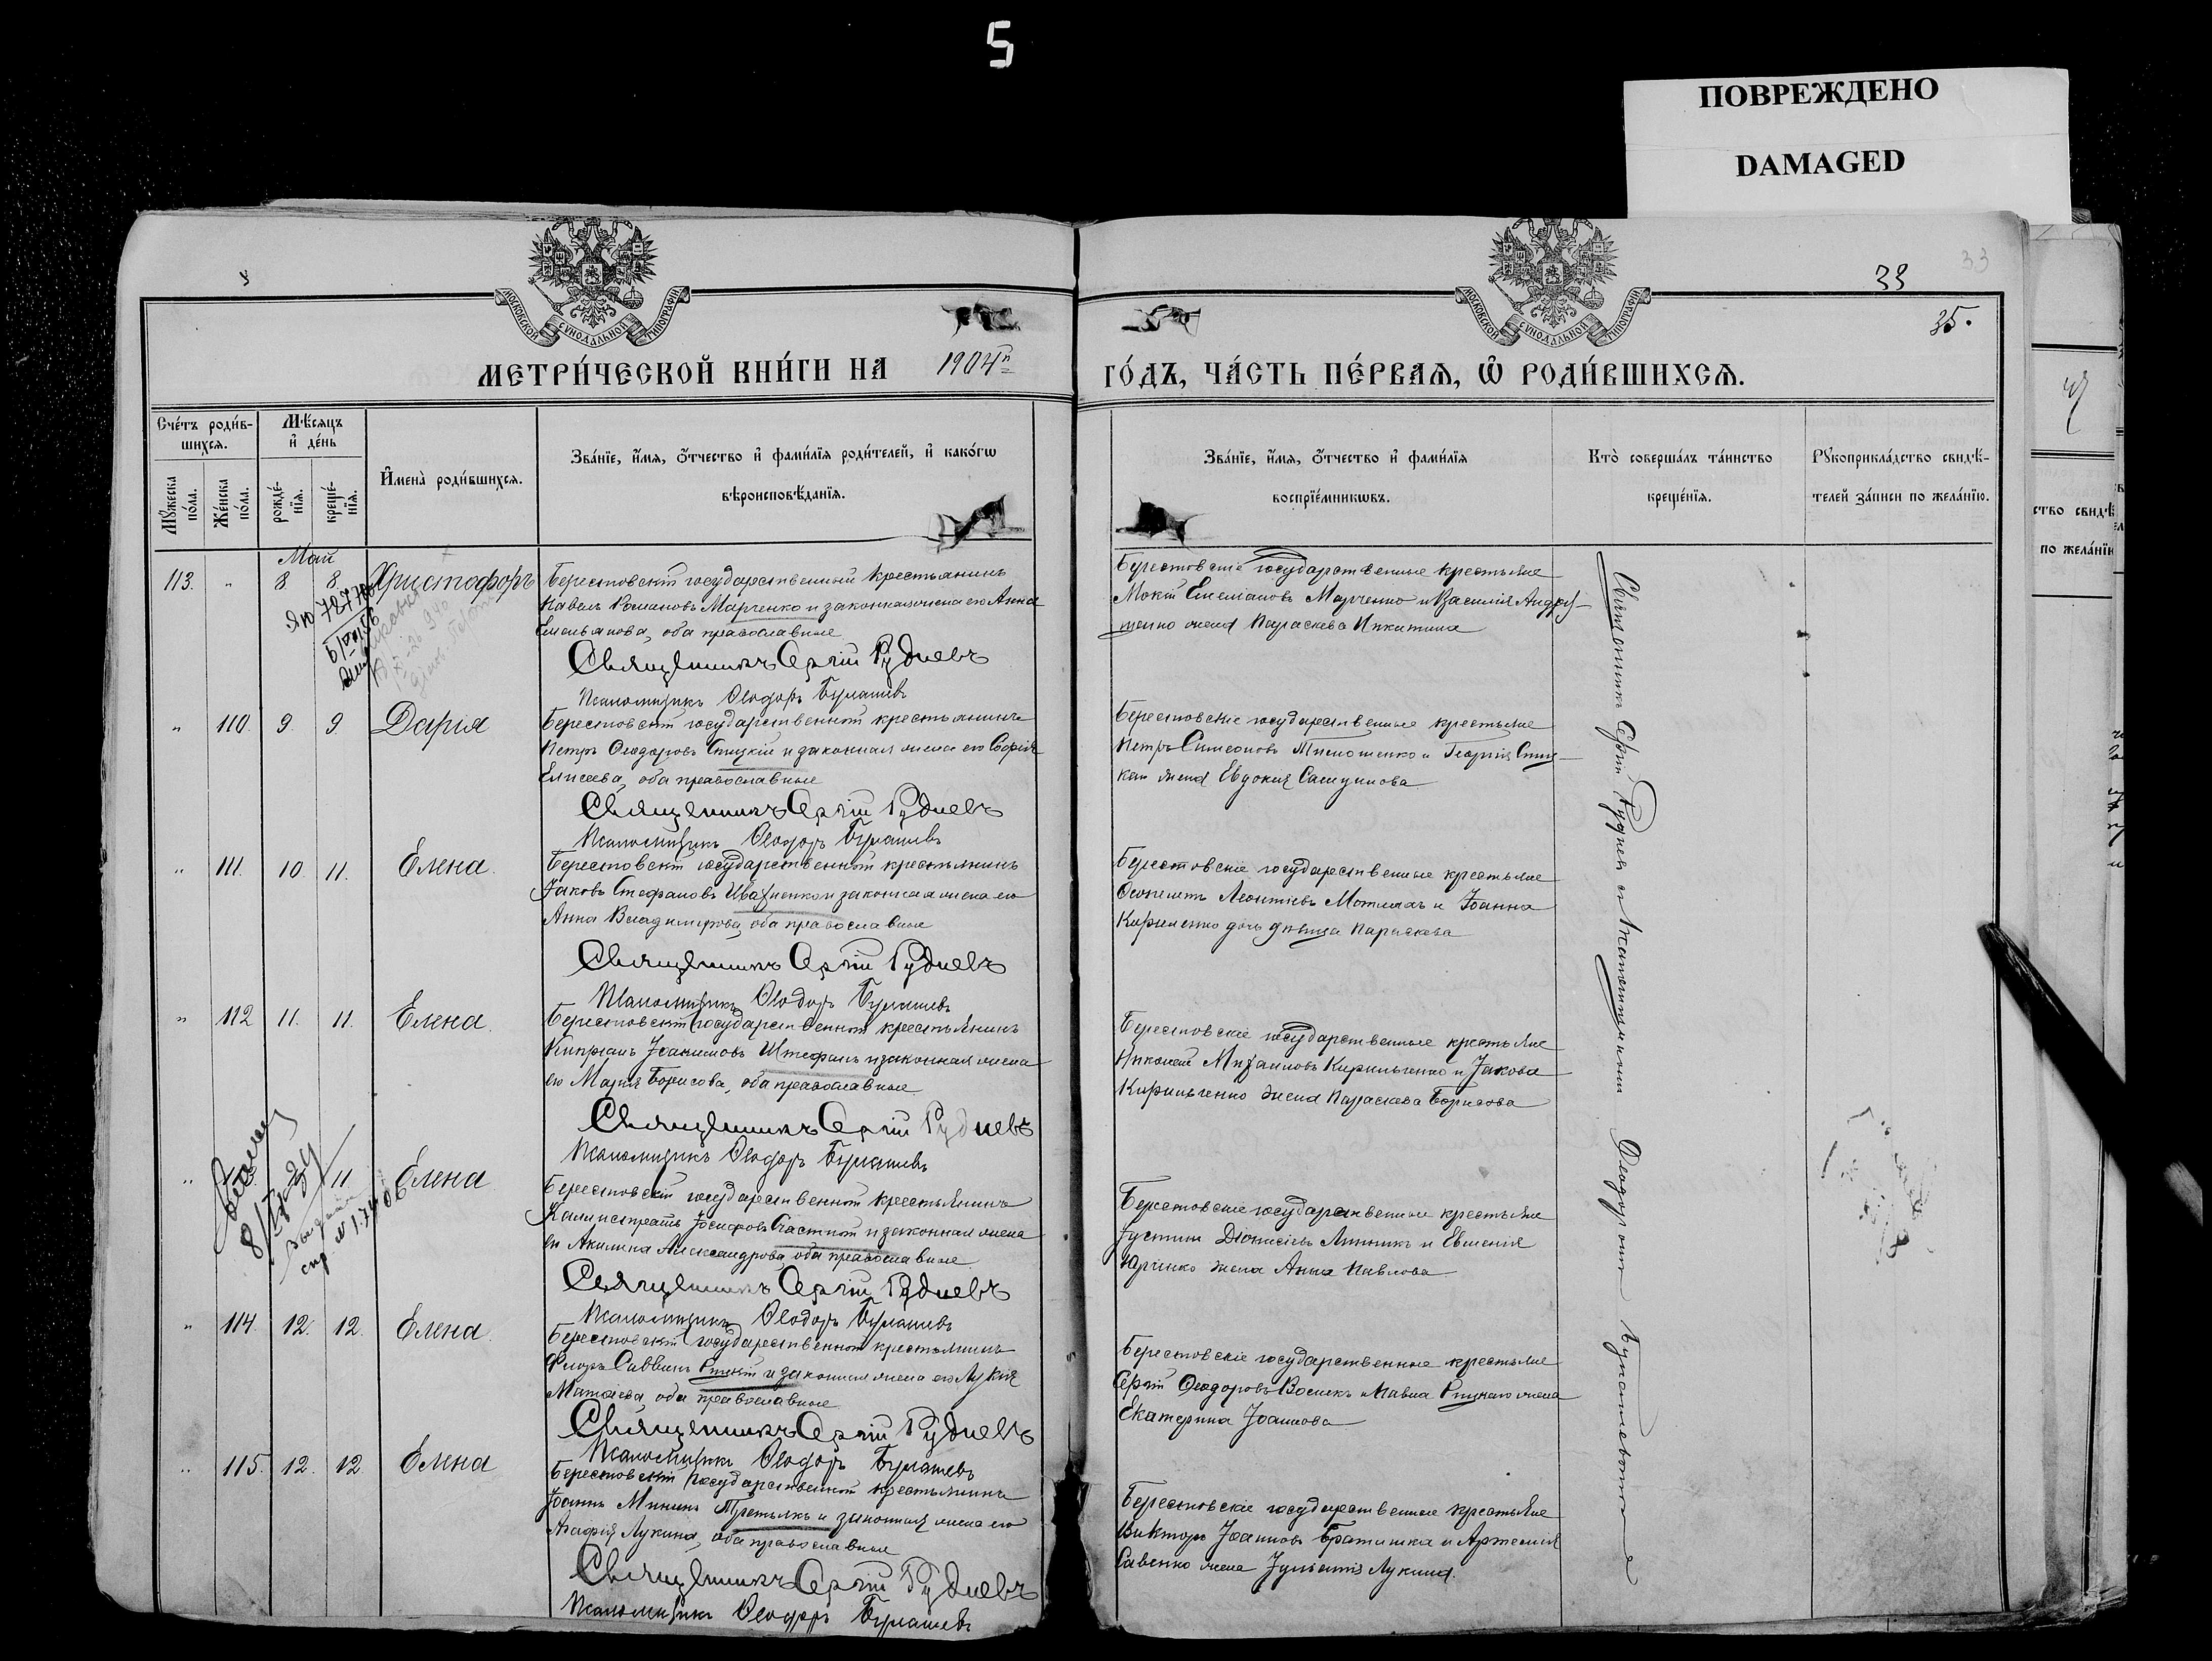 5
ПОВРЕЖДЕНО
DAMAGED
МОСКОВСКОЙ СѴНОДАЛЬНОЙ ТИПОГРАФІИ
МОСКОВСКОЙ СѴНОДАЛЬНОЙ ТИПОГРАФІИ
33
33
35.
МЕТРИ́ЧЕСКОЙ КНИ́ГИ НА 1904 ГО́ДЪ, ЧА́СТЬ ПЕ́РВАѦ, Ѡ РОДИ́ВШИХСѦ.
Сче́тъ роди́в-
шихсѧ.
Мꙋжеска по́ла.
Же́нска по́ла.
Мѣ́сѧцъ
и де́нь
рожде́-
нїѧ.
креще́-
нїѧ.
Имена̀ роди́вшихсѧ.
Зва́нїе, и́мѧ, о́тчество и фами́лїѧ роди́телей, и како́гѡ
вѣроисповѣ́данїѧ.
Зва́нїе, и́мѧ, о́тчество и фами́лїѧ
воспрїе́мникѡвъ.
Кто̀ соверша́лъ та́инство
креще́нїѧ.
Рꙋкоприкла́дство свидѣ́-
телей за́писи по жела́нїю.
ство свидѣ
по жела́нїю
Май
113. " 8 8 Христофоръ
Берестовскій государственный крестьянинъ
Павелъ Романовъ Марченко и законная жена его Анна
Емельянова, оба православные
Священникъ Сергій Рудневъ
Псаломщикъ Ѳеодоръ
Берестовскіе государственные крестьяне
Мокій Емеліановъ Марченко и Василія Андру-
щенко жена Параскева Никитина
" 110. 9. 9. Дарія
Берестовскій государственный крестьянинъ
Петръ Ѳеодоровъ Спицкій и законная жена его Софія
Елисеева, оба православные
Священникъ Сергій Рудневъ
Псаломщикъ Ѳеодоръ
Берестовскіе государственные крестьяне
Петръ Симеоновъ и Георгія
жена Евдокія
" 111. 10 11. Елена.
Берестовскій государственный крестьянинъ
Іаковъ Стефановъ Ивахненко и законная жена его
Анна Владимірова, оба православные
Священникъ Сергій Рудневъ
Псаломщикъ Ѳеодоръ
Берестовскіе государственные крестьяне
Леонтіевъ и Іоанна
Кириленко дочь дѣвица Параскева
" 112 11. 11. Елена.
Берестовскій государственный крестьянинъ
Кипріанъ Іоанновъ Штефанъ и законная жена
его Марія Борисова, оба православные
Священникъ Сергій Рудневъ
Псаломщикъ Ѳеодоръ
Берестовскіе государственные крестьяне
Николай Михаиловъ Кирильченко и Іакова
Кирильченко жена Параскева Борисова
" 11 Елена
8/IX-24
Берестовскій государственный крестьянинъ
Каллистратъ Іосифовъ Частной и законная жена
его Акилина Александрова, оба православные
Священникъ Сергій Рудневъ
Псаломщикъ Ѳеодоръ
Берестовскіе государственные крестьяне
Іустинъ Діонисіевъ Линникъ и Евгенія
Юрченко жена Анна Павлова
" 114. 12. 12. Елена.
Берестовскій государственный крестьянинъ
Флоръ Саввинъ и законная жена его Лукія
оба православные
Священникъ Сергій Рудневъ
Псаломщикъ Ѳеодоръ
Берестовскіе государственные крестьяне
Сергій Ѳеодоровъ и Павла жена
Екатерина Іоаннова
" 115. 12. 12. Елена
Берестовскій государственный крестьянинъ
Іоаннъ Мининъ Третьякъ и законная жена его
Агафія Лукина, оба православные
Священникъ Сергій Рудневъ
Псаломщикъ Ѳеодоръ
Берестовскіе государственные крестьяне
Викторъ Іоанновъ Братишка и Артемія
Савенко жена Іуліанія Лукина.
Священникъ Сергій Рудневъ съ псаломщикомъ Ѳеодоромъ